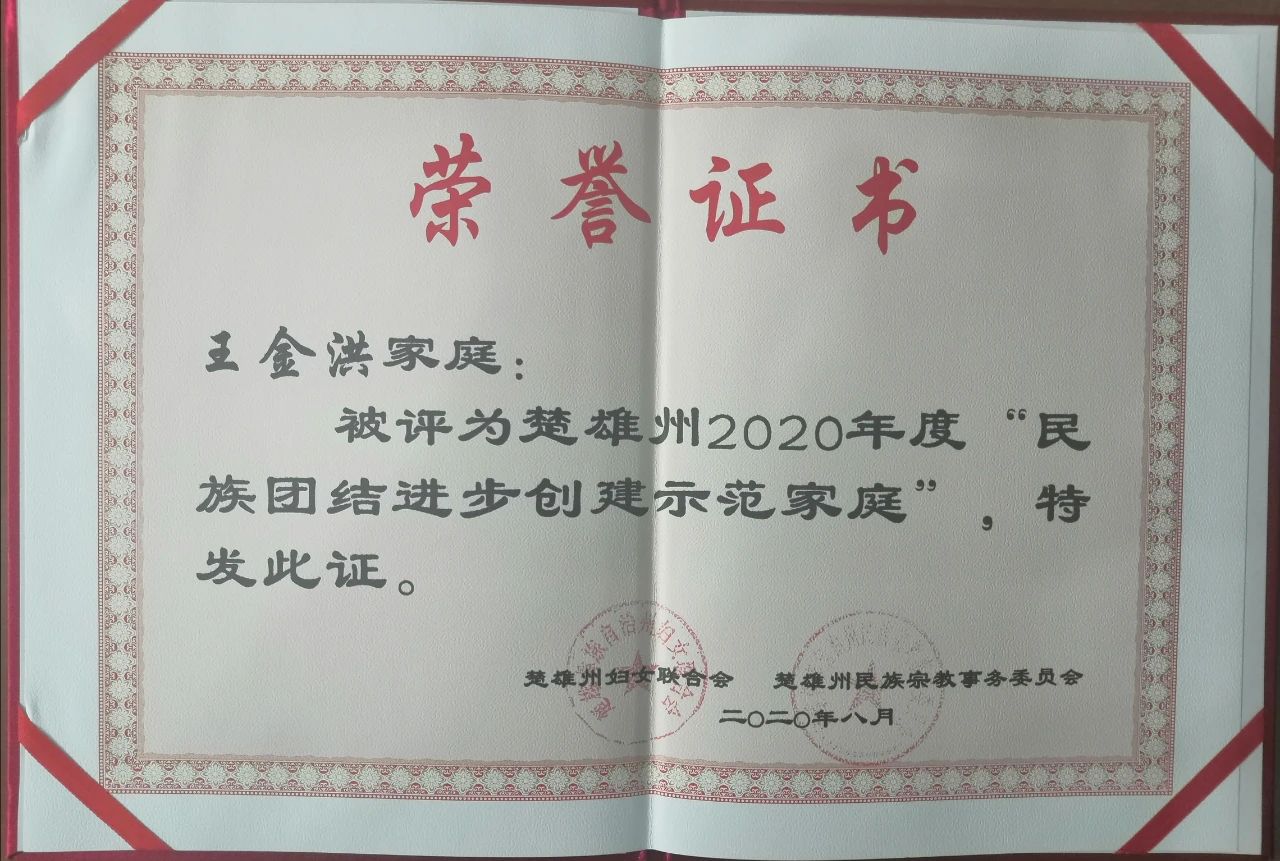 荣誉证书
王金洪家庭：
被评为楚雄州2020年度“民
族团结进步创建示范家庭”，特
发此证。
楚雄州妇女联合会 楚雄州民族宗教事务委员会
二〇二〇年八月